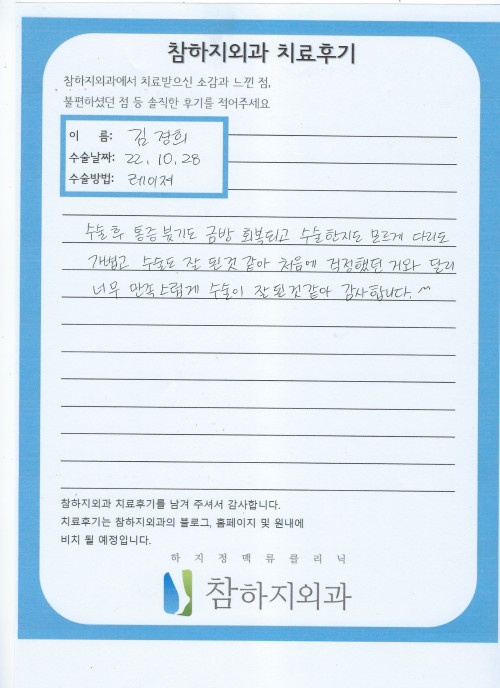 참하지외과 치료후기
참하지외과에서 치료받으신 소감과 느낀 점,
불편하셨던 점 등 솔직한 후기를 적어주세요
이 름: 김경희
수술날짜: 22. 10. 28
수술방법: 레이져
수술후 통증 붓기도 금방 회복되고 수술한지도 모르게 다리도
가볍고 수술도 잘 된것 같아 처음에 걱정했던 거와 달리
너무 만족스럽게 수술이 잘 된것 같아 감사합니다. ^^
참하지외과 치료후기를 남겨 주셔서 감사합니다.
치료후기는 참하지외과의 블로그, 홈페이지 및 원내에
비치 될 예정입니다.
하지정맥류클리닉
참하지외과